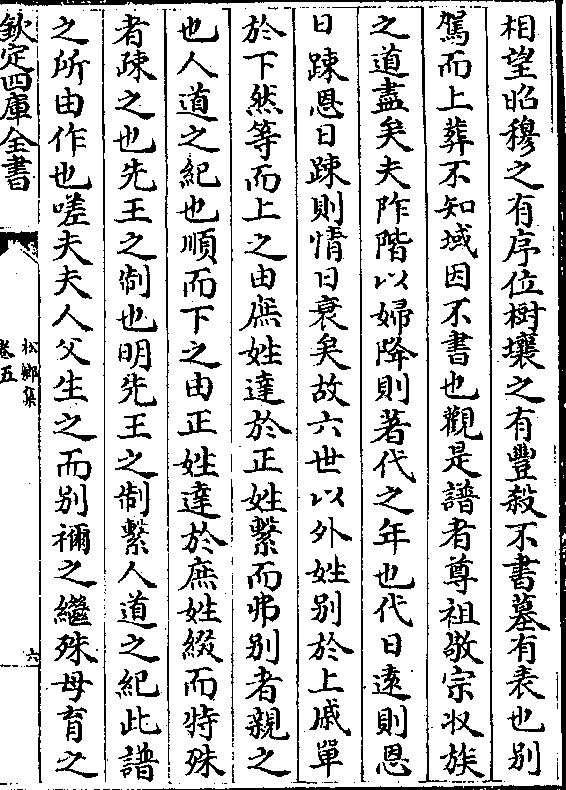 相望昭穆之有序位樹壤之有豐殺不書墓有表也别
駕而上葬不知域因不書也觀是譜者尊祖敬宗収族
之道盡矣夫阼階以婦降則著代之年也代日逺則恩
日踈恩日踈則情日衰矣故六世以外姓别於上戚單
於下然等而上之由庶姓達於正姓繫而弗别者親之
也人道之紀也順而下之由正姓達於庶姓綴而特殊
者疎之也先王之制也明先王之制繫人道之紀此譜
之所由作也嗟夫夫人父生之而别禰之繼殊母育之
欽定四庫全書
松鄉集
卷五
六